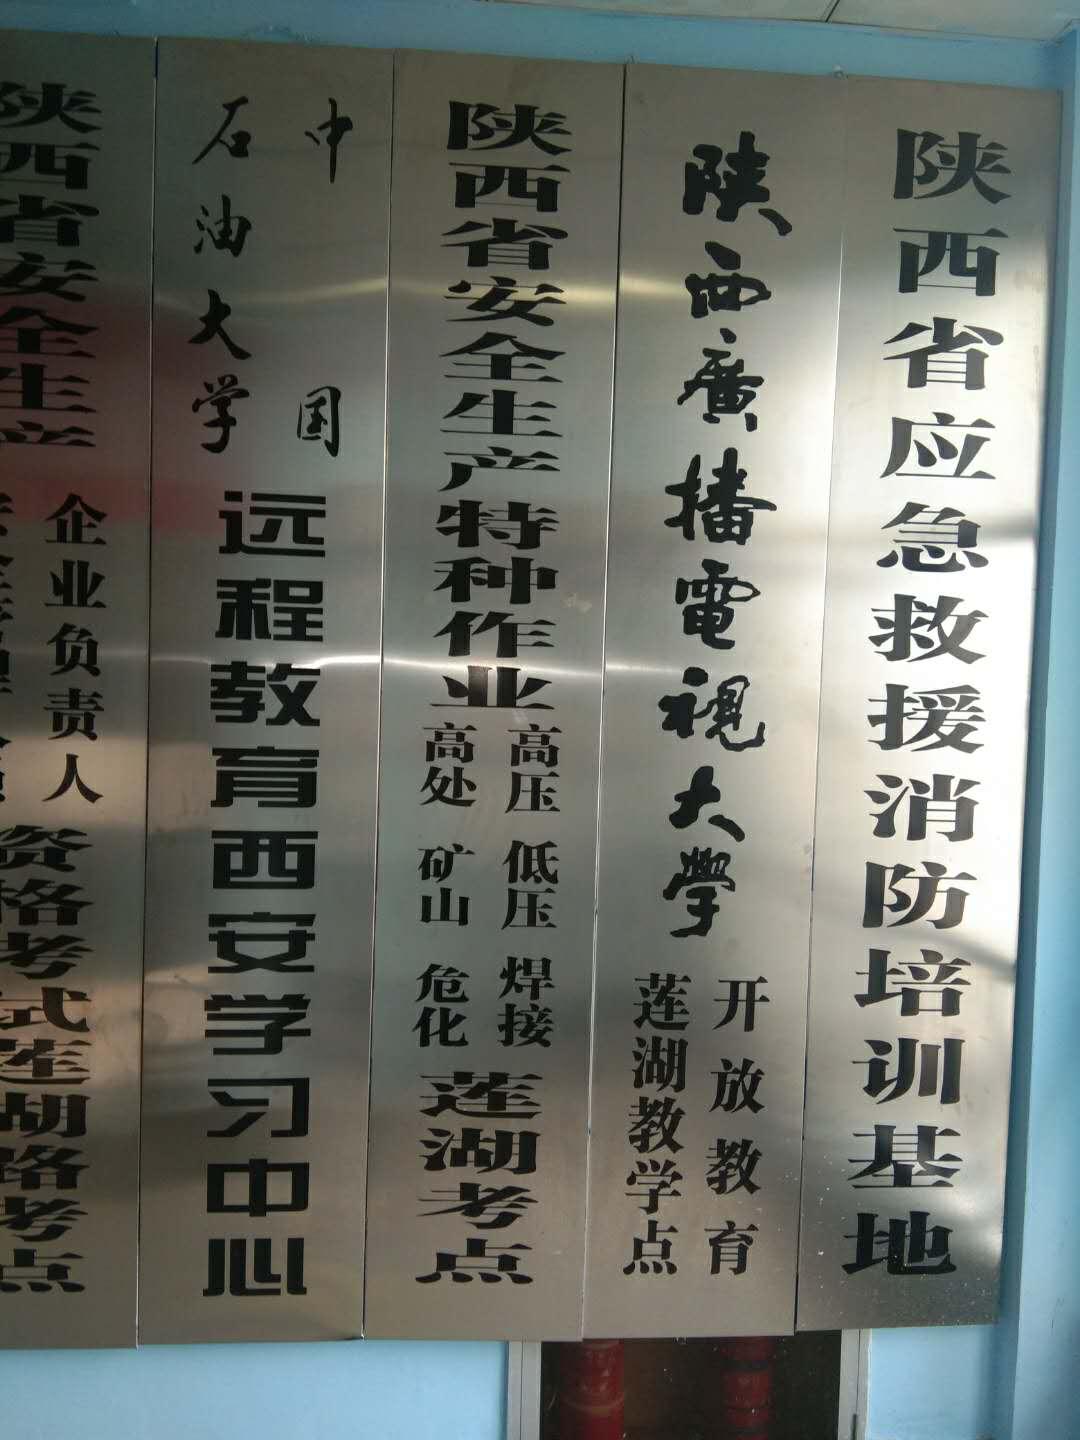 陕西省应急救援消防培训基地
陕西廣播電視大學
开放教育
莲湖教学点
陕西省安全生产特种作业
高压 低压 焊接
高处 矿山 危化
莲湖考点
中国
石油大学
远程教育西安学习中心
陕西省安全生产
企业负责人
资格考试莲湖路考点